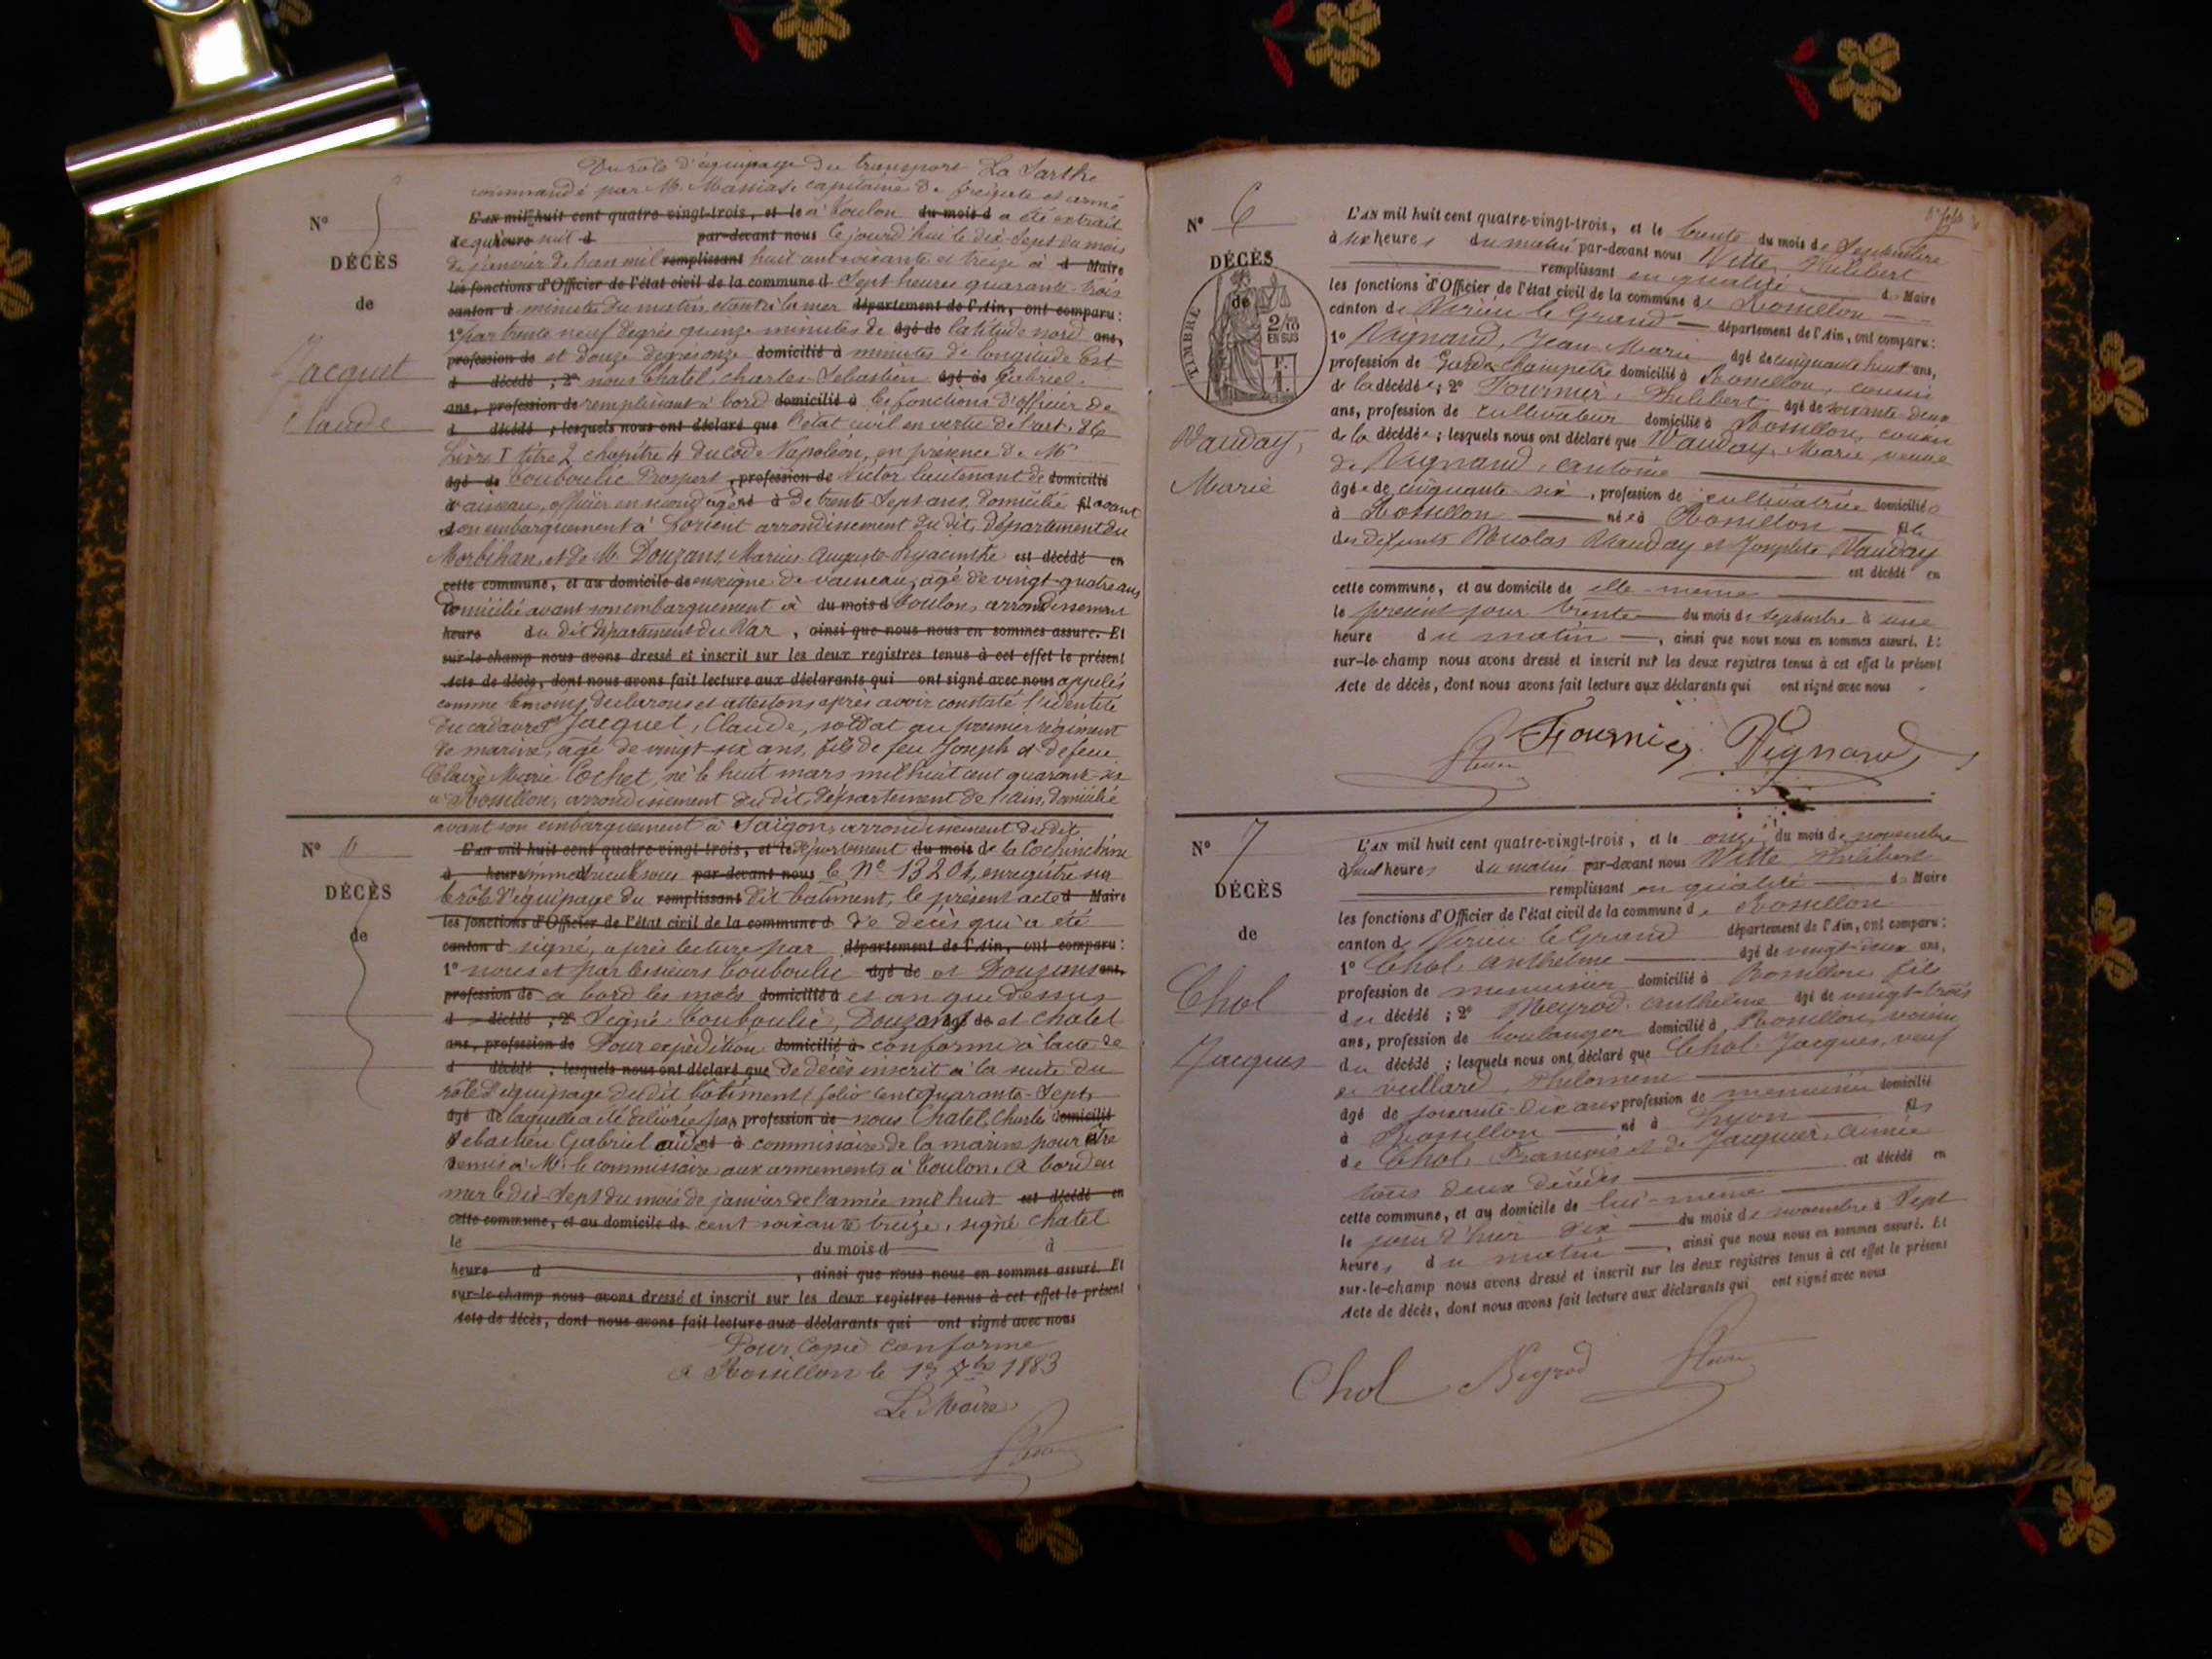 Du rôle d'équipage du transport La Sarthe
commandé par M. Massias capitaine de frégate et armé
N° 5
L'AN mil huit cent quatre-vingt-trois, et le à Toulon du mois d a été extrait
heure d par-devant nous le jourd'hui le dix-sept du mois
DÉCÈS
de janvier de l'an mil remplissant huit cent soixante et treize à d Maire
les fonctions d'Officier de l'état civil de la commune d Sept heures quarante-trois
de
canton d minutes du matin étant à la mer département de l'Ain, ont comparu :
1° par trente neuf degrés quinze minutes de âgé de latitude nord ans,
profession de et douze degrés onze domicilié à minutes de longitude Est
Jacquet
d décédé ; 2° nous Chatel, Charles Sebastien âgé de Gabriel
ans, profession de remplissant à bord domicilié à les fonctions d'officier de
Claude
d décédé ; lesquels nous ont déclaré que l'état civil en vertu de l'art. 86
Livre I titre 2 chapitre 4 du Code Napoléon, en présence de Mr
âgé de Couboulic Prosper, profession de Victor lieutenant de domicilié
à vaisseau, officier en second âgé né à de trente sept ans, domicilié fil avant
son embarquement à Lorient arrondissement du dit, département du
Morbihan, et de M. Douzans, Marius Auguste Hyacinthe est décédé en
cette commune, et au domicile de enseigne de vaisseau, âgé de vingt-quatre ans
domicilié avant son embarquement à du mois d Toulon, arrondissement
heure du dit département du Var, ainsi que nous nous en sommes assuré. Et
sur-le-champ nous avons dressé et inscrit sur les deux registres tenus à cet effet le présent
Acte de décès, dont nous avons fait lecture aux déclarants qui ont signé avec nous appelés
comme témoins, déclarons et attestons après avoir constaté l'identité
du cadavre Jacquet, Claude, soldat au premier régiment
de marine, âgé de vingt-six ans, fils de feu Joseph et de feue
Claire Marie Cochet, né le huit mars mil huit cent quarante-six
à Rossillon, arrondissement du dit, département de l'ain, domicilié
avant son embarquement à Saïgon, arrondissement du dit
N°
L'AN mil huit cent quatre-vingt-trois, et le département du mois de la Cochinchine
à heure immatriculé sous par-devant nous le N° 13201, enregistré sur
DÉCÈS
le rôle d'équipage du remplissant dit batiment, le présent acte d Maire
les fonctions d'Officier de l'état civil de la commune d de décès qui a été
de
canton d signé, après lecture par département de l'Ain, ont comparu :
1° nous et par Messieurs Couboulic âgé de et Douzans ans,
profession de à bord les mois domicilié à et an que dessus
d décédé ; 2° Signé Couboulic, Douzans âgé de et Chatel
ans, profession de Pour expédition domicilié à conforme à l'acte de
d décédé ; lesquels nous ont déclaré que de décès inscrit à la suite du
rôle d'équipage du dit bâtiment folio cent quarante-sept
âgé de laquelle a été délivrée par profession de nous Chatel, Charles domicilié
Sebastien Gabriel aide né à commissaire de la marine pour être
remis à Mr. le commissaire aux armements à Toulon. A bord en
mer le dix-sept du mois de janvier de l'année mil huit est décédé en
cette commune, et au domicile de cent soixante treize, signé Chatel
le du mois d à
heure d , ainsi que nous nous en sommes assuré. Et
sur-le-champ nous avons dressé et inscrit sur les deux registres tenus à cet effet le présent
Acte de décès, dont nous avons fait lecture aux déclarants qui ont signé avec nous
Pour Copie conforme
à Rossillon le 1er 7bre 1883
Le Maire
N° 6
L'AN mil huit cent quatre-vingt-trois, et le trente du mois de Septembre
à six heures du matin par-devant nous Vitte, Philibert
DÉCÈS
remplissant en qualité de Maire
les fonctions d'Officier de l'état civil de la commune de Rossillon
de
TIMBRE
2/10
EN SUS
canton de Virieu le Grand département de l'Ain, ont comparu :
1° Vugnand, Jean-Marie âgé de cinquante huit ans,
profession de Garde Champêtre domicilié à Rossillon, cousin
de la décédée ; 2° Fournier, Philibert âgé de soixante deux
ans, profession de cultivateur domicilié à Rossillon, cousin
Vauday,
de la décédée ; lesquels nous ont déclaré que Vauday, Marie, veuve
de Vugnand, antoine
Marie
âgée de cinquante-six, profession de cultivatrice domiciliée
à Rossillon née à Rossillon fille
des défunts Nicolas Vauday et Josephte Vauday
est décédé en
cette commune, et au domicile de elle-même
le présent jour trente du mois de septembre à une
heure du matin, ainsi que nous nous en sommes assuré. Et
sur-le-champ nous avons dressé et inscrit sur les deux registres tenus à cet effet le présent
Acte de décès, dont nous avons fait lecture aux déclarants qui ont signé avec nous
Fournier Vignand
N° 7
L'AN mil huit cent quatre-vingt-trois, et le onze du mois de novembre
à huit heures du matin par-devant nous Vitte, Philibert
DÉCÈS
remplissant en qualité de Maire
les fonctions d'Officier de l'état civil de la commune de Rossillon
de
canton de Virieu le Grand département de l'Ain, ont comparu :
1° Chol, anthelme âgé de vingt-deux ans,
Chol
profession de menuisier domicilié à Rossillon, fils
du décédé ; 2° Neyrod, anthelme âgé de vingt-trois
ans, profession de boulanger domicilié à Rossillon, voisin
Jacques
du décédé ; lesquels nous ont déclaré que Chol, Jacques, veuf
de vullard, Philomene
âgé de soixante-dix ans profession de menuisier domicilié
à Rossillon né à Lyon fils
de Chol, François et de Jacquier, aimée
tous deux décédés est décédé en
cette commune, et au domicile de lui-même
le jour d'hier dix du mois de novembre à sept
heures du matin, ainsi que nous nous en sommes assuré. Et
sur-le-champ nous avons dressé et inscrit sur les deux registres tenus à cet effet le présent
Acte de décès, dont nous avons fait lecture aux déclarants qui ont signé avec nous
Chol Neyrod